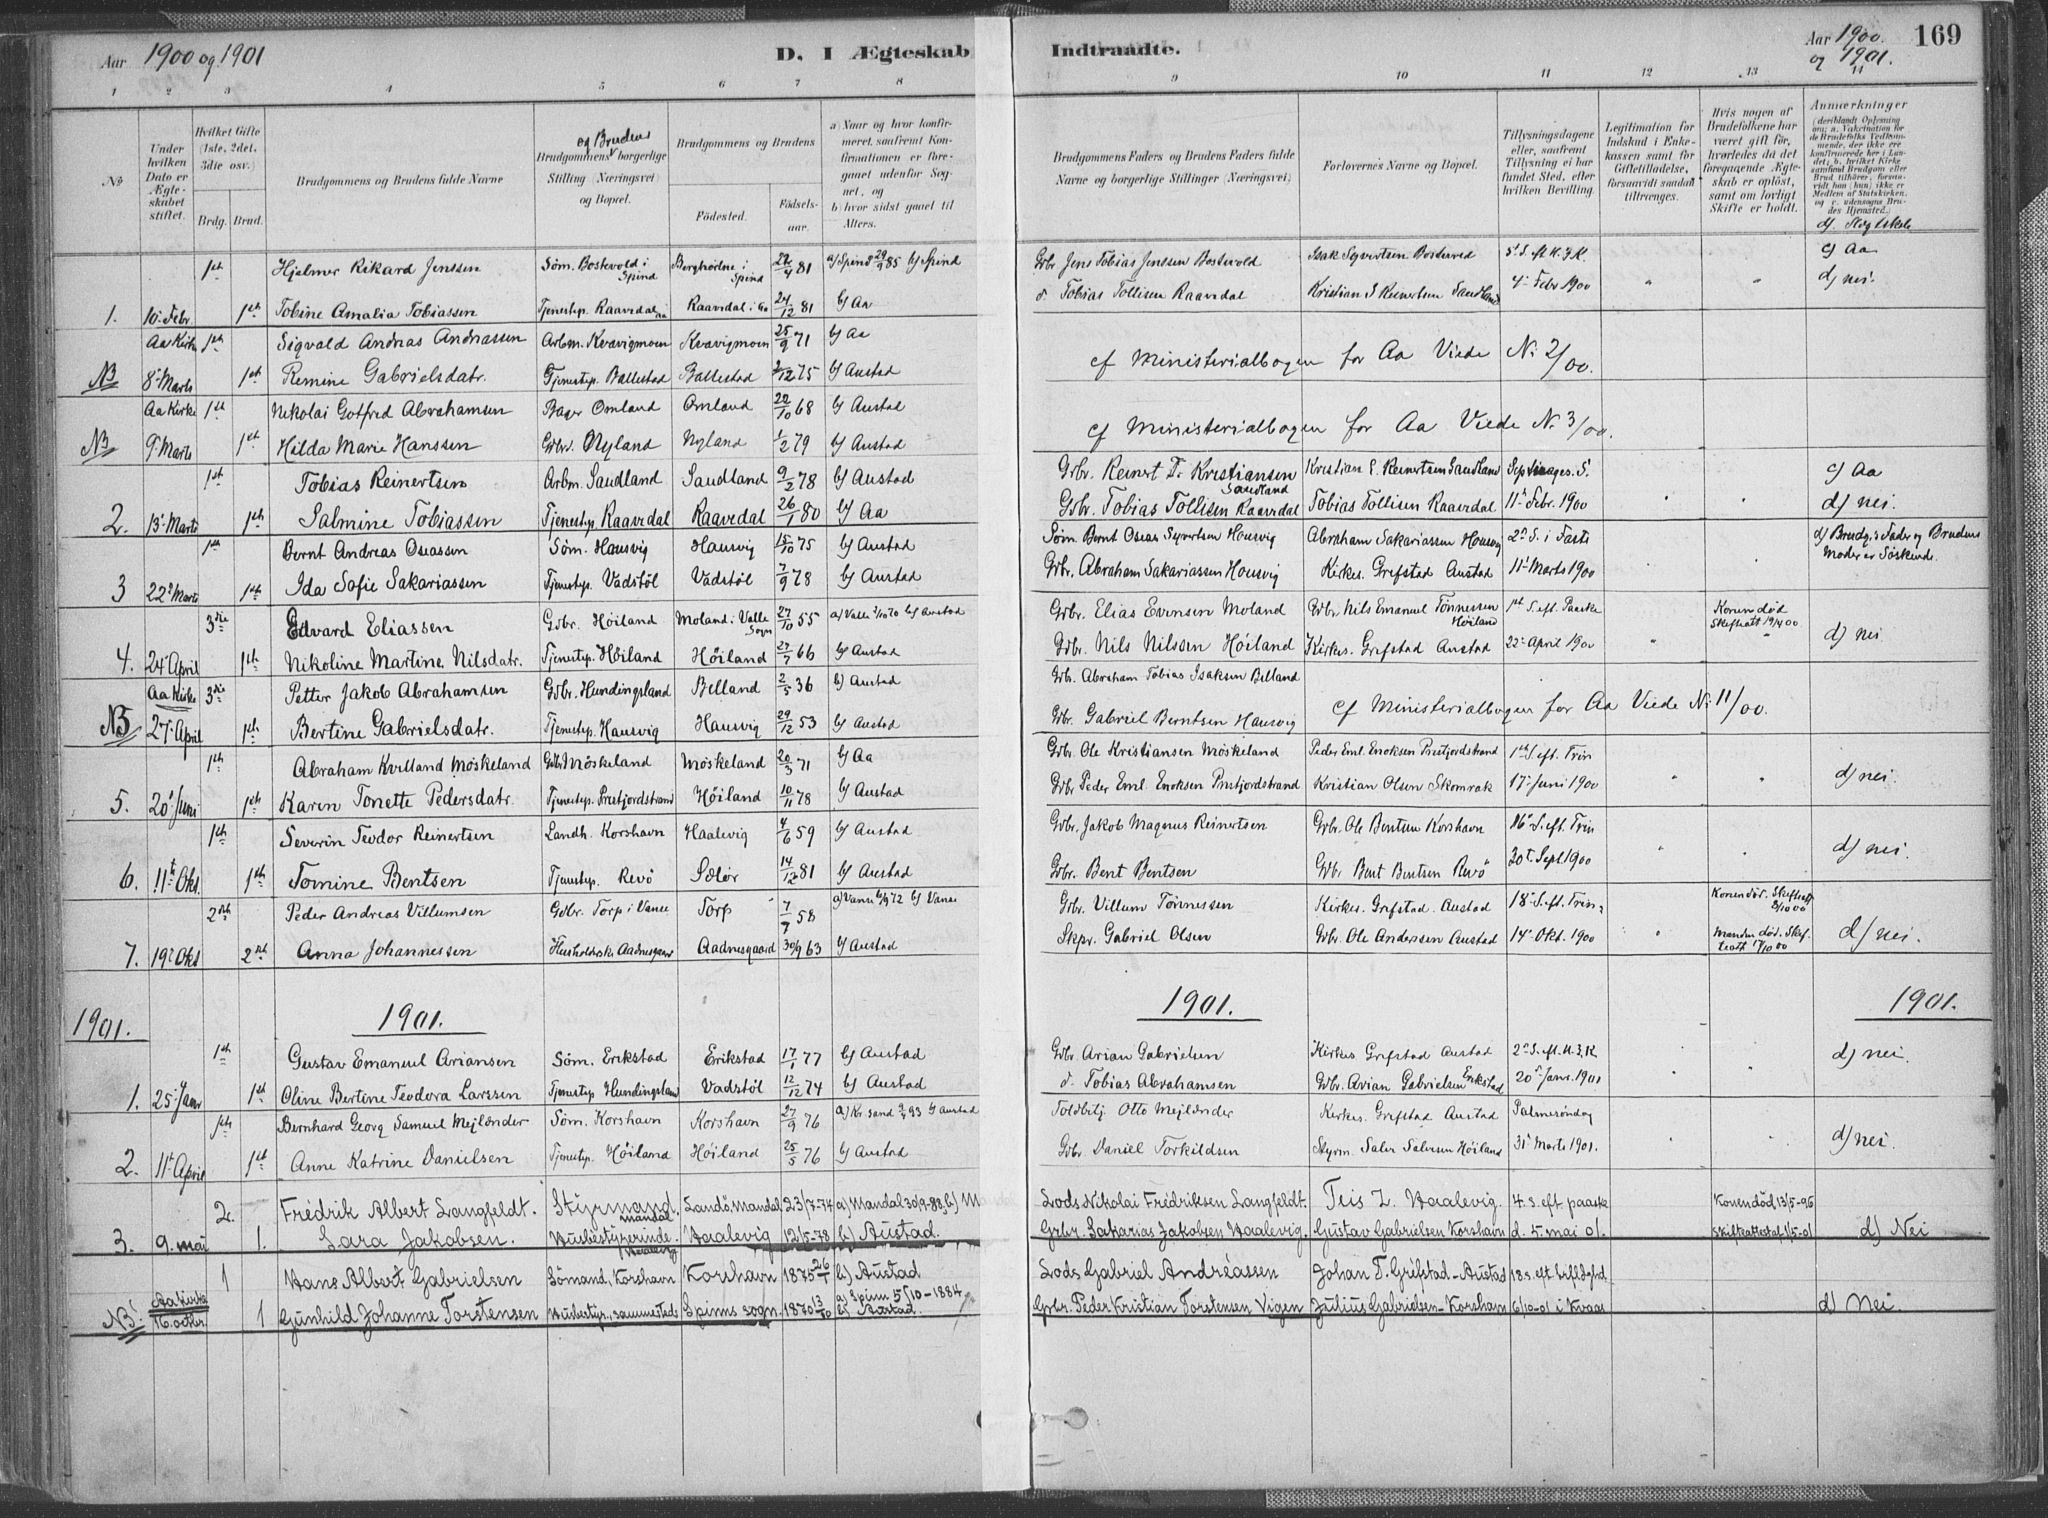 Aar 1900 og 1901 D. I Ægteskab Indtraadte. Aar 1900. og 1901. 169
1 2 3 4 5 6 7 8 9 10 11 12 13 14
No
Under hvilken Dato er Ægteskabet stiftet.
Hvilket Gifte (1ste, 2det, 3die osv.)
Brdg. Brud.
Brudgommens og Brudens fulde Navne
Brudgommens og Brudens borgerlige Stilling (Næringsvei) og Bopæl.
Brudgommens og Brudens
Fødested. Fødselsaar.
a) Naar og hvor konfirmeret, saafremt Konfirmationen er foregaaet udenfor Sognet, og
b) hvor sidst gaaet til Alters.
Brudgommens Faders og Brudens Faders fulde Navne og borgerlige Stillinger (Næringsvei)
Forlovernes Navne og Bopæl.
Tillysningsdagene eller, saafremt Tillysning ei har fundet Sted, efter hvilken Bevilling.
Legitimation for Indskud i Enkekassen samt for Giftetilladelse, forsaavidt saadan tiltrænges.
Hvis nogen af Brudefolkene har været gift før, hvorledes da det foregaaende Ægteskab er opløst, samt om lovligt Skifte er holdt.
Anmærkninger (deriblandt Oplysning om: a. Vakcination for de Brudefolks Vedkommende, der ikke ere konfirmerede her i Landet; b. hvilket Kirkesamfund Brudgom eller Brud tilhører, forsaavidt han (hun) ikke er Medlem af Statskirken, og c. udensogns Brudes Hjemsted.)
d) Slegtskab
1ste Hjelmer Rikard Jenssen Søm. Bostevold i Spind Berghøilne i Spind 22/4 81 a) Spind 29/9 85 b) Spind Gbr Jens Tobias Jenssen Bostevold Isak Syvertsen Bostvold 5' S. eft H. 3 K. c) Aa
1. 10. Febr. 1ste Tobine Amalia Tobiassen Tjenestep. Raavedal Aa Raavedal i Aa 24/12 81 b) Aa d. Tobias Tollisen Raavedal Kristian S Reinertsen Sandland 4' Febr 1900 " " d) nei.
Aa Kirke 1ste Sigvald Andreas Andreassen Arbm. Kvavigmoen Kvavigmoen 25/9 71 b) Aa
NB 8' Marts 1ste Remine Gabrielsdatr. Tjenestep. Ballestad Ballestad 2/12 75 b) Austad cf Ministerialbogen for Aa Viede No 2/00.
Aa Kirke 1ste Nikolai Gotfred Abrahamsen Bager Omland Omland 20/10 68 b) Austad
NB 9' Marts 1ste Hilda Marie Hanssen Gbr. Nyland Nyland 1/2 79 b) Austad cf Ministerialbogen for Aa Viede No 3/00.
1ste Tobias Reinertsen Arbm. Sandland Sandland 9/2 78 b) Austad Gbr. Reinert T. Kristiansen Sandland Kristian E. Reinertsen Sandland Septuages. S. c) Aa
2. 13' Marts 1ste Salmine Tobiassen Tjenestep. Raavedal Raavedal 26/1 80 b) Aa Gbr. Tobias Tollisen Raavedal Tobias Tollisen Raavedal 11' Febr. 1900 " " d) nei.
1ste Bernt Andreas Oseassen Søm. Hausvig Hausvig 15/10 75 b) Austad Søm. Bernt Oseas Syvertsen Hausvig Abraham Sakariassen Housvig 2' S. i Faste d) Brudg.s Fader og Brudens Moder er Søskende.
3 22' Marts 1ste Ida Sofie Sakariassen Tjenestep. Vadstøl Vadstøl 7/9 78 b) Austad Gbr. Abraham Sakariassen Housvig Kirkes. Grefstad Austad 11' Marts 1900
3die Edvard Eliassen Gbr. Høiland Moland i Valle Sogn 27/10 55 a) Valle 1/10 70 b) Austad Gbr. Elias Evensen Moland Gbr Nils Emanuel Tønnessen Høiland 1ste S. eft. Paaske Konen død Skifteatt 19/4 00
4. 24' April 1ste Nikoline Martine Nilsdatr. Tjenestep. Høiland Høiland 27/7 66 b) Austad Gbr. Nils Nilssen Høiland Kirkes. Grefstad Austad 22' April 1900 " " d) nei
Aa Kirke 3die Petter Jakob Abrahamsen Gbr. Hundingsland Belland 2/5 36 b) Austad Gbr. Abraham Tobias Isaksen Belland
NB 27' April 1ste Bertine Gabrielsdatr. Tjenestep. Hausvig Hausvig 29/12 53 b) Austad Gbr. Gabriel Berntsen Hausvig cf Ministerialbogen for Aa Viede No 11/00.
1ste Abraham Kvilland Møskeland Gbr Møskeland Møskeland 20/3 71 b) Aa Gbr. Ole Kristiansen Møskeland Peder Eml. Enoksen Prestfjordstrand 1ste S. eft. Trin
5. 20' Juni 1ste Karen Tonette Pedersdatr. Tjenestep. Prestfjordstrand Høiland 10/11 78 b) Austad Gbr Peder Eml. Enoksen Prestfjordstrand Kristian Olsen Skomrak 17' Juni 1900 " " d) nei.
1ste Severin Teodor Reinertsen Landh. Korshavn Haalevig 4/6 59 b) Austad Gbr. Jakob Magnus Reinertsen Gbr. Ole Bentsen Korshavn 16' S. eft. Trin
6. 11te Okt. 1ste Tomine Bentsen Tjenestep. Revø Sælør 14/12 81 b) Austad Gbr. Bent Bentsen Gbr Bent Bentsen Revø 30' Sept 1900 " " d) nei.
2den Peder Andreas Villumsen Gbr. Torp i Vanse Torp 7/7 58 a) Vanse 6/9 72 b) Vanse Gbr. Villum Tønnessen Kirkes. Grefstad. Austad 18' S. eft. Trin. Konen død. Skifteatt 8/10 00
7. 19' Okt 2den Anna Johannessen Husholderske Aadnesgaard Aadnesgaard 30/9 63 b) Austad Skpr. Gabriel Olsen Gbr. Ole Andersen Austad 14' Okt. 1900 " Manden død. Skifteatt 17/10 00 d) nei.
1901. 1901. 1901. 1901.
1ste Gustav Emanuel Ariansen Søm. Erikstad Erikstad 17/1 77 b) Austad Gbr. Arian Gabrielsen Kirkes Grefstad Austad 2' S. eft. H. 3. K d) nei.
1. 25' Janr 1ste Oline Bertine Teodora Larssen Tjenestep Hundingsland Vadstøl 12/12 74 b) Austad d. Tobias Abrahamsen Gbr. Arian Gabrielsen Erikstad 20' Janr. 1901
1ste Bernhard Georg Samuel Mejlænder Søm. Korshavn Korshavn 27/9 76 a) Kr. sand 9/4 93 b) Austad Toldbetj Otto Mejlænder Kirkes. Grefstad Austad Palmesøndag
2. 11' April 1ste Anne Katrine Danielsen Tjenestep. Høiland Høiland 25/5 76 b) Austad Gbr Daniel Torkildsen Styrm. Salve Salvesen Høiland 31' Marts 1901. d) nei
2. Fredrik Albert Langfeldt. Styrmand. Mandal Sandø, Mandal 23/7-74 a) Mandal 30/9-88, b) M Lods Nikolai Fredriksen Langfeldt. Teis Z. Haalevig. 4. s. eft paaske Konen død 13/5-96
3. 9. mai 1. Sara Jakobsen. Husbestyrerinde. Haalevig Haalevig 12/5-78 b) Austad. Grbr. Zakarias Jakobsen Haalevig. Gustav Gabrielsen Korshavn d. 5. mai 01. Skifteattest 1/5-01 d) Nei
1 Hans Albert Gabrielsen Sømand, Korshavn Korshavn 1875 26/1 b) Austad Lods Gabriel Andreassen Johan T. Grefstad - Austad 18 s. eft trefldghd
NB! Aa Kirke 16. oktbr. 1 Gunhild Johanne Torstensen Husbestyr., sammesteds Spinns sogn. 1870 13/10 a) Spinn 5/10-1884 b) Austad. Grbr. Peder Kristian Torstensen Vigen Julius Gabrielsen - Korshavn 6/10-01 i Kvaas d) Nei.